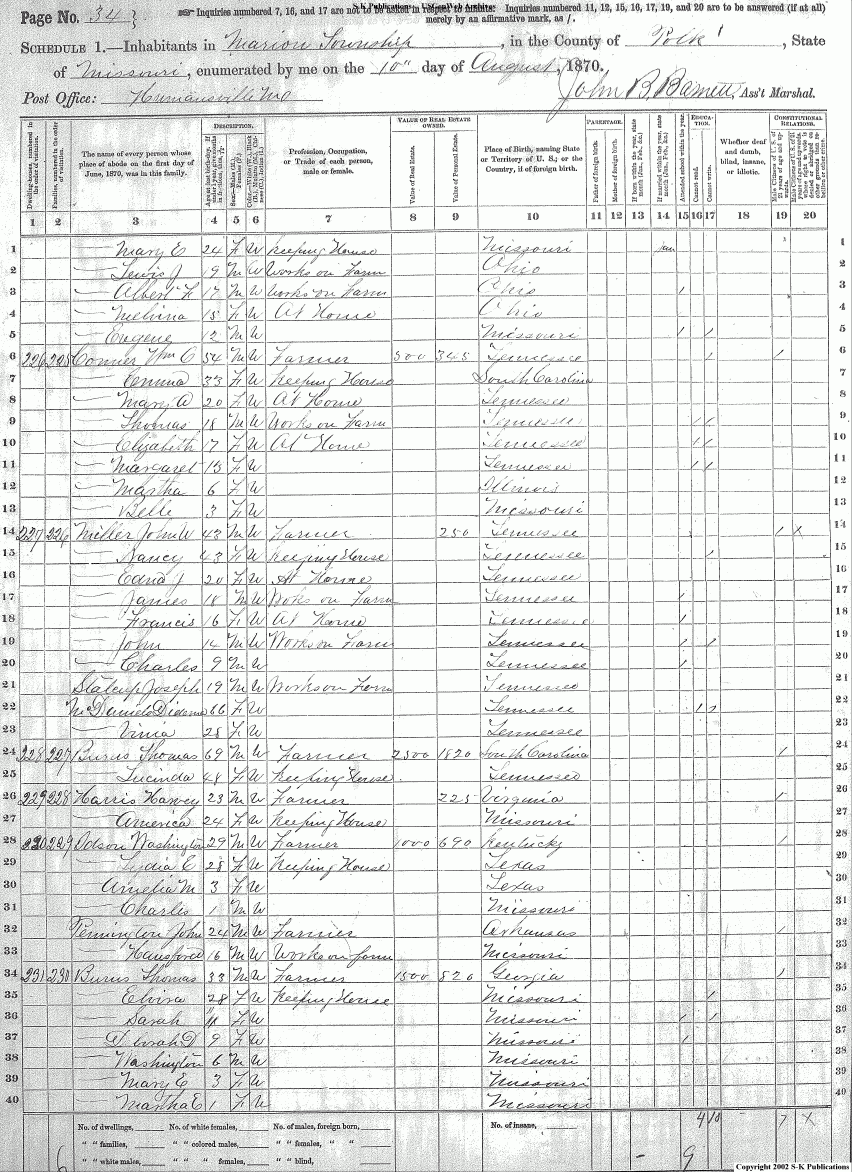 S-K Publications: USGenWeb Archives
Page No. 34
Inquiries numbered 7, 16, and 17 are not to be asked in respect to infants. Inquiries numbered 11, 12, 15, 16, 17, 19, and 20 are to be answered (if at all) merely by an affirmative mark, as /.
SCHEDULE 1.—Inhabitants in Marion Township, in the County of Polk, State
of Missouri, enumerated by me on the 10" day of August, 1870.
Post Office: Humansville Mo
John B. Barnett, Ass't Marshal.
Dwelling-houses, numbered in the order of visitation.
Families, numbered in the order of visitation.
The name of every person whose place of abode on the first day of June, 1870, was in this family.
DESCRIPTION.
Profession, Occupation, or Trade of each person, male or female.
VALUE OF REAL ESTATE OWNED.
Value of Real Estate.
Value of Personal Estate.
Place of Birth, naming State or Territory of U. S.; or the Country, if of foreign birth.
PARENTAGE.
Father of foreign birth.
Mother of foreign birth.
EDUCATION.
Attended school within the year.
Cannot read.
Cannot write.
Whether deaf and dumb, blind, insane, or idiotic.
CONSTITUTIONAL RELATIONS.
1 2 3 4 5 6 7 8 9 10 11 12 13 14 15 16 17 18 19 20
1 — Mary E 24 F W Keeping House Missouri Jan 1
2 — Lewis J 19 M W Works on Farm Ohio 2
3 — Albert F 17 M W Works on Farm Ohio / 3
4 — Melvina 15 F W At Home Ohio 4
5 — Eugene 12 M W Missouri / / 5
6 226 225 Conner Wm C 54 M W Farmer 500 345 Tennessee / / 6
7 — Emma 33 F W Keeping House South Carolina 7
8 — Mary A 20 F W At Home Tennessee 8
9 — Thomas 18 M W Works on Farm Tennessee / / 9
10 — Elizabeth 17 F W At Home Tennessee / / 10
11 — Margaret 13 F W Tennessee / / 11
12 — Martha 6 F W Illinois 12
13 — Belle 3 F W Missouri 13
14 227 226 Miller John W 43 M W Farmer 250 Tennessee / X 14
15 — Nancy 43 F W Keeping House Tennessee / 15
16 — Edna J 20 F W At Home Tennessee 16
17 — James 18 M W Works on Farm Tennessee / 17
18 — Francis 16 F W At Home Tennessee / 18
19 — John 14 M W Works on Farm Tennessee / / 19
20 — Charles 9 M W Tennessee / 20
21 Joseph 19 M W Works on Farm Tennessee 21
22 66 F W Tennessee / / 22
23 — 28 F W Tennessee 23
24 228 227 Burns Thomas 69 M W Farmer 2500 1820 South Carolina / 24
25 — Lucinda 48 F W Keeping House Tennessee 25
26 229 228 Harris Harvey 23 M W Farmer 225 Virginia / 26
27 — America 24 F W Keeping House Missouri 27
28 230 229 Odson Washington 29 M W Farmer 1000 690 Kentucky / 28
29 — Lydia E 28 F W Keeping House Texas 29
30 — Amelia M 3 F W Texas 30
31 — Charles 1 M W Missouri 31
32 Pennington John 24 M W Farmer Arkansas / 32
33 — Hansford 16 M W Works on farm Missouri 33
34 231 230 Burns Thomas 33 M W Farmer 1500 820 Georgia / 34
35 — Elvira 28 F W Keeping House Missouri / 35
36 — Sarah 11 F W Missouri / / 36
37 — 9 F W Missouri / 37
38 — Washington 6 M W Missouri 38
39 — Mary E 3 F W Missouri 39
40 — Martha E 1 F W Missouri 40
No. of dwellings, No. of white females, No. of males, foreign born, No. of insane, 4 10 7 X
" " families, " " colored males, " " females, " "
" " white males, " " " females, " " blind, 9
Copyright 2002 S-K Publications